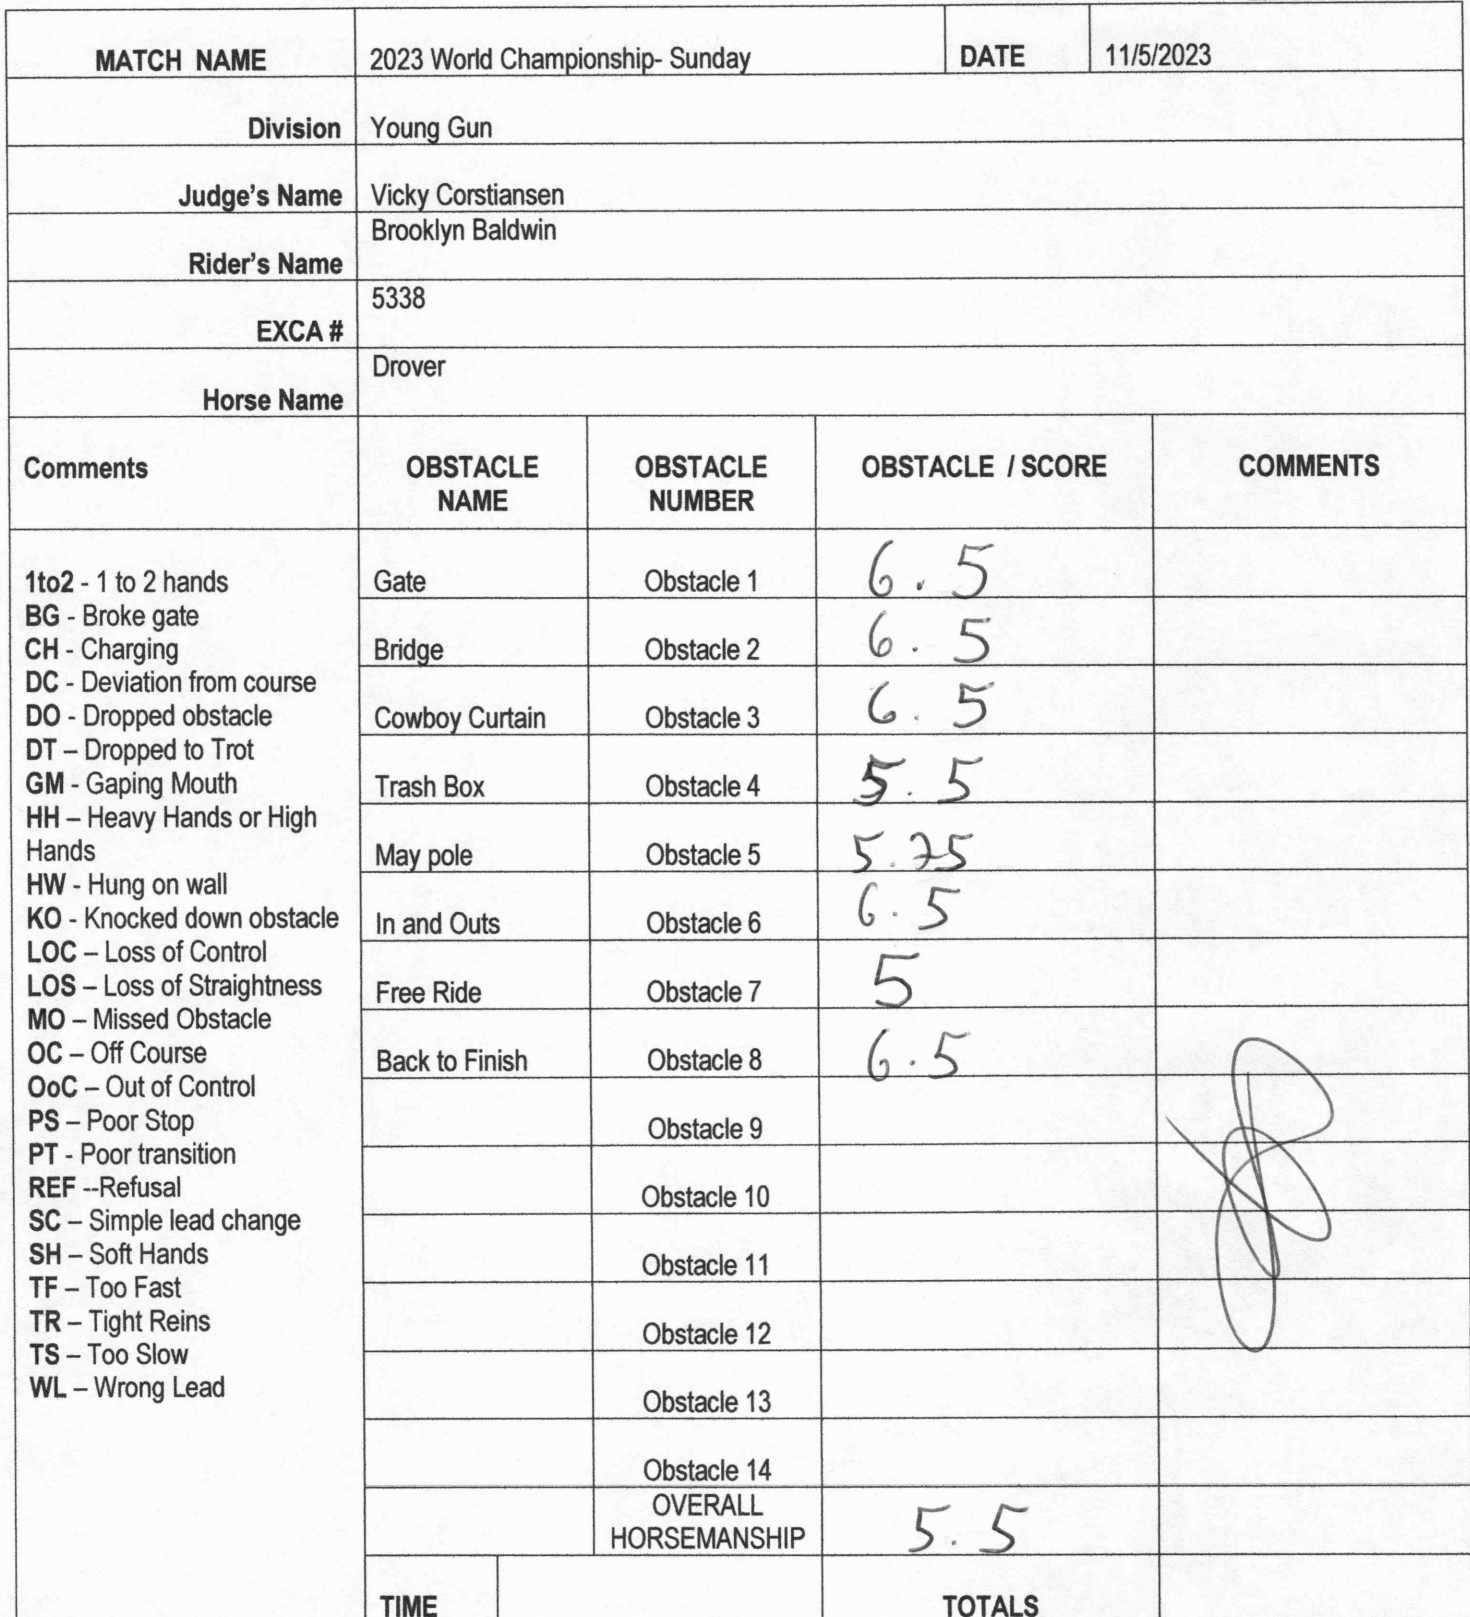 MATCH NAME 2023 World Championship- Sunday DATE 11/5/2023
Division Young Gun
Judge's Name Vicky Corstiansen
Brooklyn Baldwin
Rider's Name
5338
EXCA #
Drover
Horse Name
Comments OBSTACLE NAME OBSTACLE NUMBER OBSTACLE / SCORE COMMENTS
1to2 - 1 to 2 hands
BG - Broke gate
CH - Charging
DC - Deviation from course
DO - Dropped obstacle
DT – Dropped to Trot
GM - Gaping Mouth
HH – Heavy Hands or High
Hands
HW - Hung on wall
KO - Knocked down obstacle
LOC – Loss of Control
LOS – Loss of Straightness
MO – Missed Obstacle
OC – Off Course
OoC – Out of Control
PS – Poor Stop
PT - Poor transition
REF --Refusal
SC – Simple lead change
SH – Soft Hands
TF – Too Fast
TR – Tight Reins
TS – Too Slow
WL – Wrong Lead
Gate Obstacle 1 6.5
Bridge Obstacle 2 6.5
Cowboy Curtain Obstacle 3 6.5
Trash Box Obstacle 4 5.5
May pole Obstacle 5 5.75
In and Outs Obstacle 6 6.5
Free Ride Obstacle 7 5
Back to Finish Obstacle 8 6.5
Obstacle 9
Obstacle 10
Obstacle 11
Obstacle 12
Obstacle 13
Obstacle 14
OVERALL
HORSEMANSHIP 5.5
TIME TOTALS